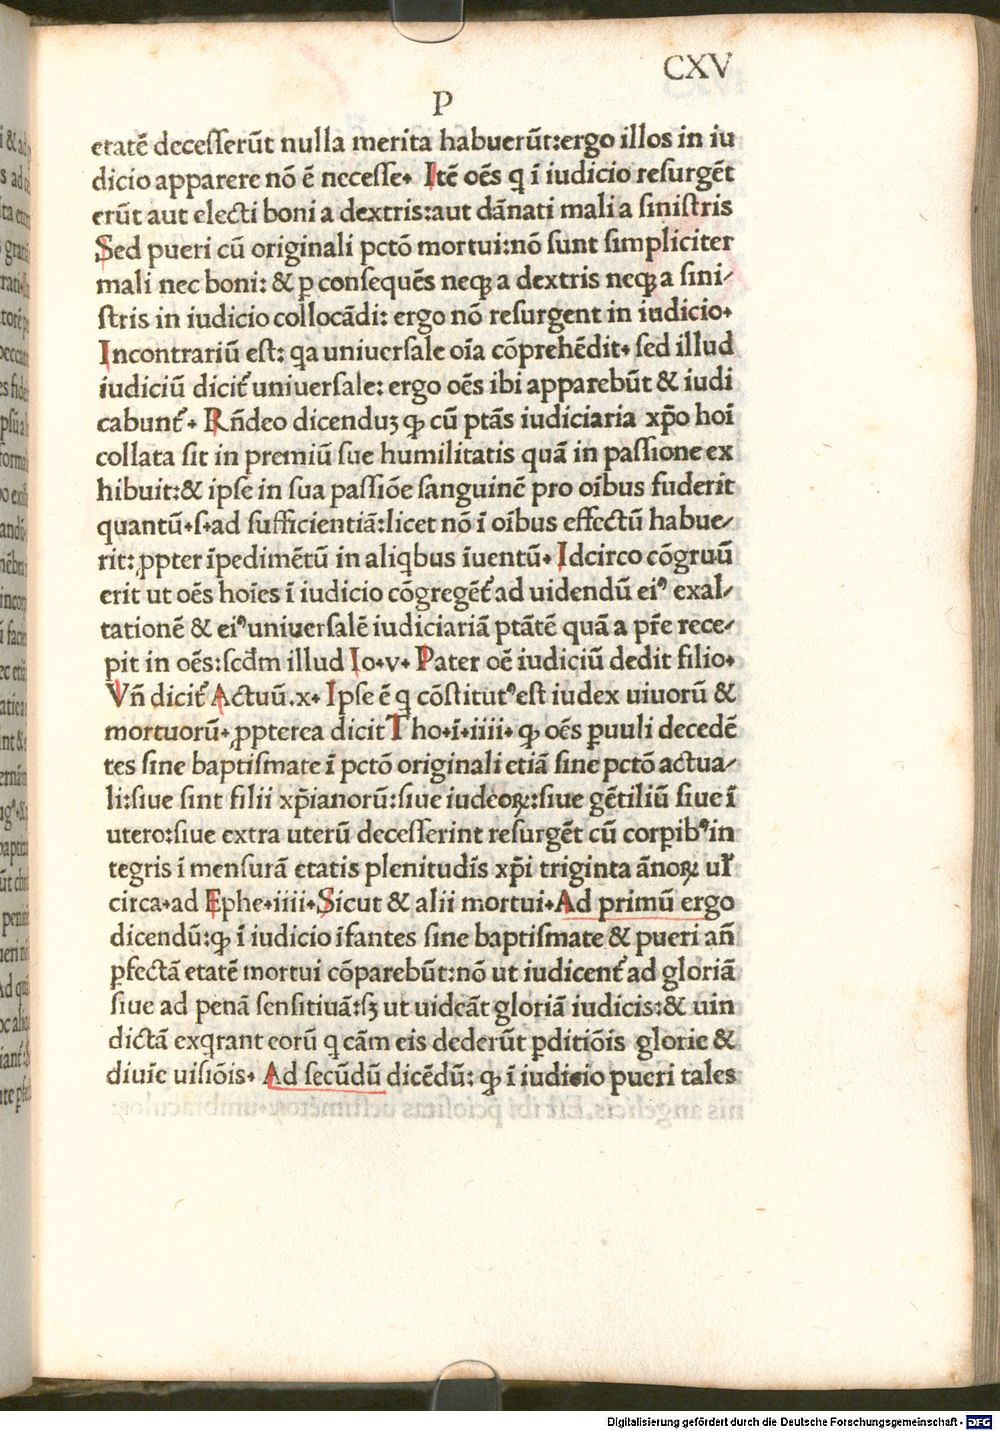 CXV
P
etatē deceſſerūt nulla merita habuerūt:ergo illos in iu
dicio apparere nō ē neceſſe. Itē oēs q ī iudicio reſurgēt
erūt aut electi boni a dextris:aut dānati mali a ſiniſtris
Sed pueri cū originali pctō mortui:nō ſunt ſimpliciter
mali nec boni: & ꝑ conſequēs neqꝫ a dextris neqꝫ a ſini⸗
ſtris in iudicio collocādi: ergo nō reſurgent in iudicio.
Incontrariū eſt: qa uniuerſale oīa cōprehēdit. ſed illud
iudiciū dicit᷑ uniuerſale: ergo oēs ibi apparebūt & iudi
cabunt᷑. Rñdeo dicenduꝫ ꝙ cū ptās iudiciaria xp̄o hoī
collata ſit in premiū ſue humilitatis quā in paſſione ex
hibuit:& ipſe in ſua paſſiōe ſanguinē pro oībus fuderit
quantū.ſ.ad ſufficientiā:licet nō ī oībus effectū habue⸗
rit: ꝓpter īpedimētū in aliqbus īuentū. Idcirco cōgruū
erit ut oēs hoīes ī iudicio cōgregēt᷑ ad uidendū eiꝰ exal⸗
tationē & eiꝰ uniuerſalē iudiciariā ptātē quā a pr̄e rece⸗
pit in oēs:ſcd̄m illud Io.v. Pater oē iudiciū dedit filio.
Vn̄ dicit᷑ Actuū.x. Ipſe ē q cōſtitutꝰ eſt iudex uiuorū &
mortuorū. ꝓpterea dicit Tho.ī.iiii. ꝙ oēs ꝑuuli decedē
tes ſine baptiſmate ī pctō originali etiā ſine pctō actua⸗
li:ſiue ſint filii xp̄ianorū:ſiue iudeoꝝ:ſiue gētiliū ſiue ī
utero:ſiue extra uterū deceſſerint reſurgēt cū corꝑibꝰ in
tegris ī menſurā etatis plenitudīs xp̄i triginta ānoꝝ ul̄
circa.ad Ephe.iiii.Sicut & alii mortui.Ad primū ergo
dicendū:ꝙ ī iudicio īfantes ſine baptiſmate & pueri an̄
ꝑfectā etatē mortui cōparebūt:nō ut iudicent᷑ ad gloriā
ſiue ad penā ſenſitiuā:ſꝫ ut uideāt gloriā iudicis:& uin
dictā exqrant eorū q cām eis dederūt ꝑditiōis glorie &
diuīe uiſiōis. Ad ſecūdū dicēdū: ꝙ ī iudicio pueri tales
Digitalisierung gefördert durch die Deutsche Forschungsgemeinschaft - DFG